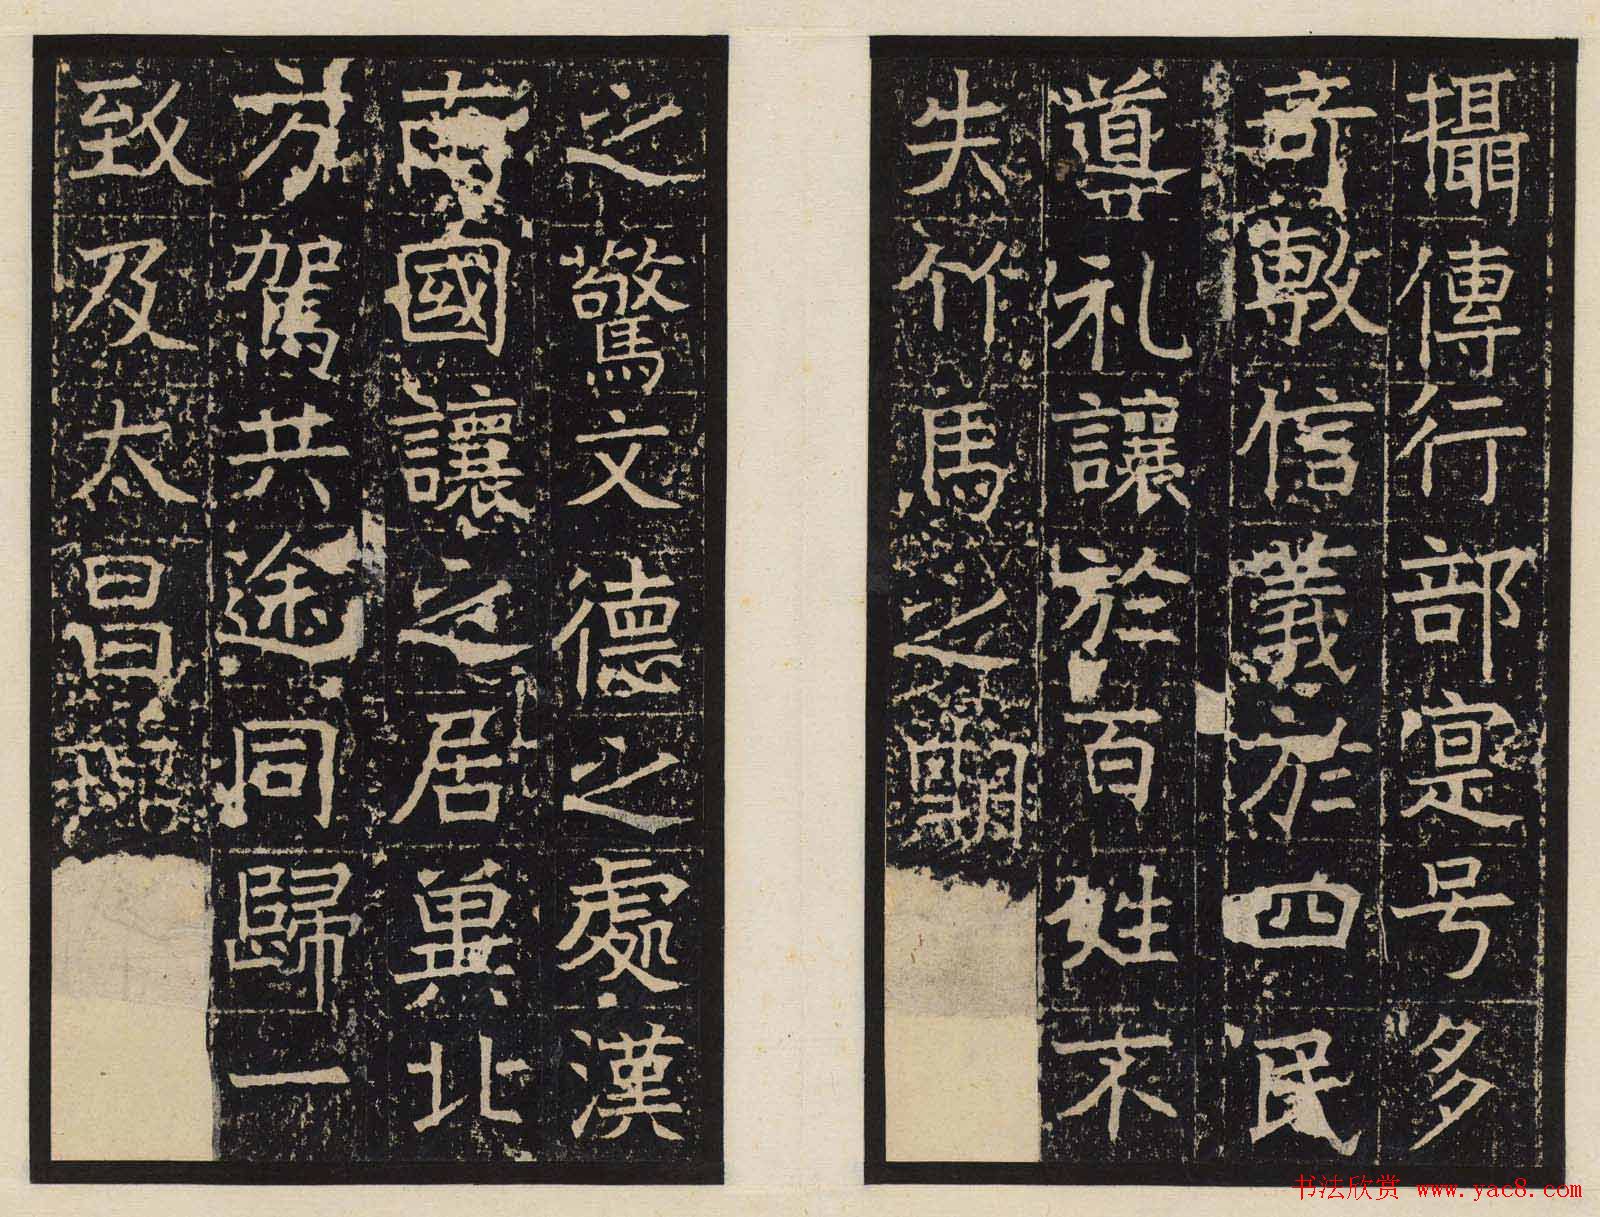 攝傳行部寔号多
奇敷信義於四民
導礼讓於百姓不
失竹馬之
之驚文德之處漢
南國讓之居冀北
方駕共途同歸一
致及太昌
书法欣赏 www.yac8.com